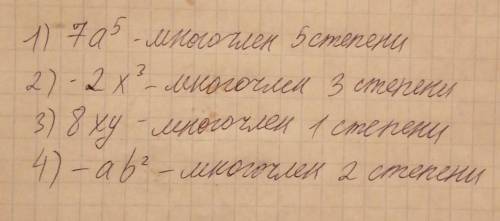 1) 7a⁵ - многочлен 5 степени
2) - 2x³ - многочлен 3 степени
3) 8xy - многочлен 1 степени
4) - ab² - многочлен 2 степени